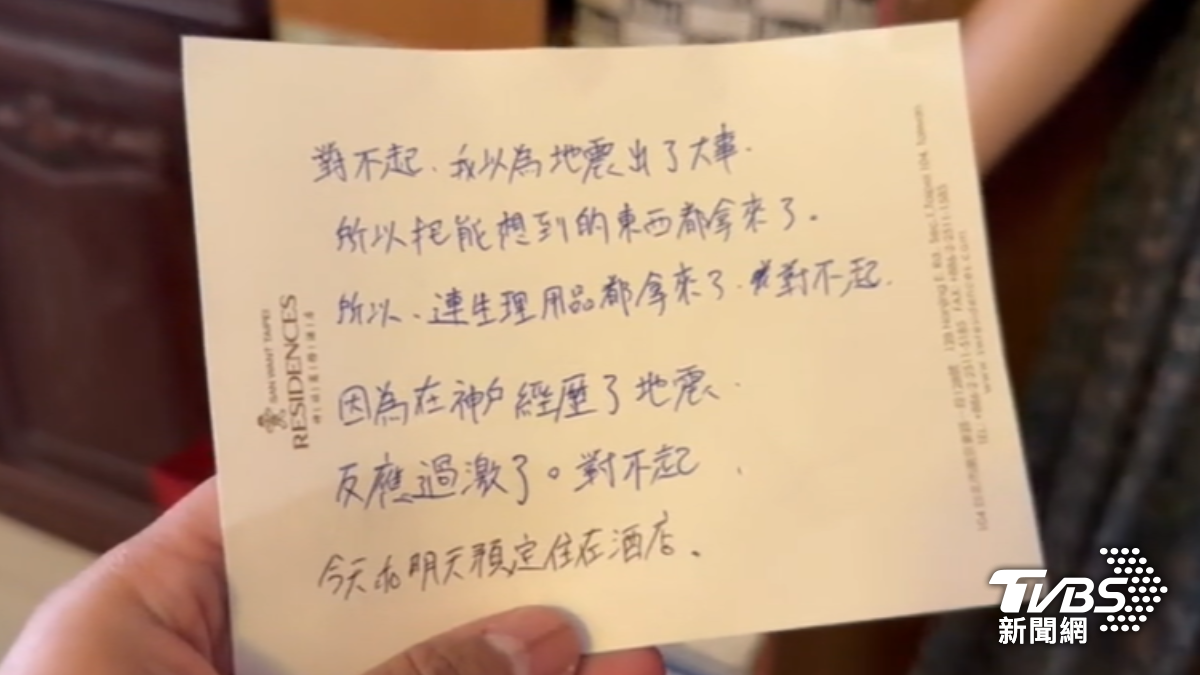 對不起、我以為地震出了大事.
所以把能想到的東西都拿來了。
所以、連生理用品都拿來了.對不起.
因為在神戶經歷了地震.
反應過激了。對不起.
今天和明天預定住在酒店。
SAN WANT TAIPEI
RESIDENCES
TVBS
新聞網